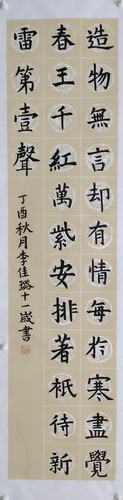 造物無言却有情每扵寒盡覺
春王千紅萬紫安排著祇待新
雷第壹聲
丁酉秋月李佳璐十一歲書